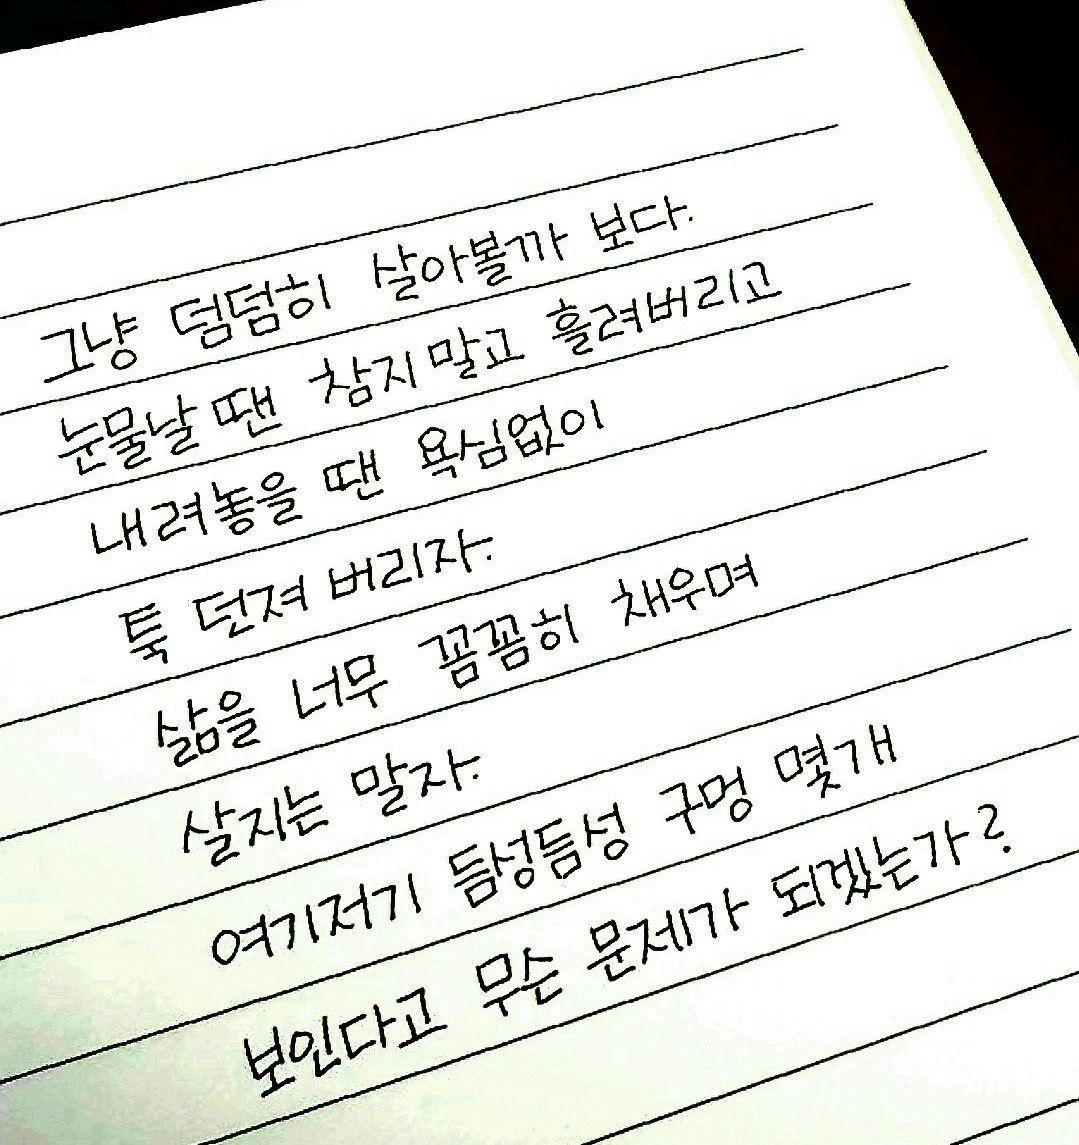 그냥 덤덤히 살아볼까 보다.
눈물날 땐 참지 말고 흘려버리고
내려놓을 땐 욕심없이
툭 던져 버리자.
삶을 너무 꼼꼼히 채우며
살지는 말자.
여기저기 듬성듬성 구멍 몇개
보인다고 무슨 문제가 되겠는가?